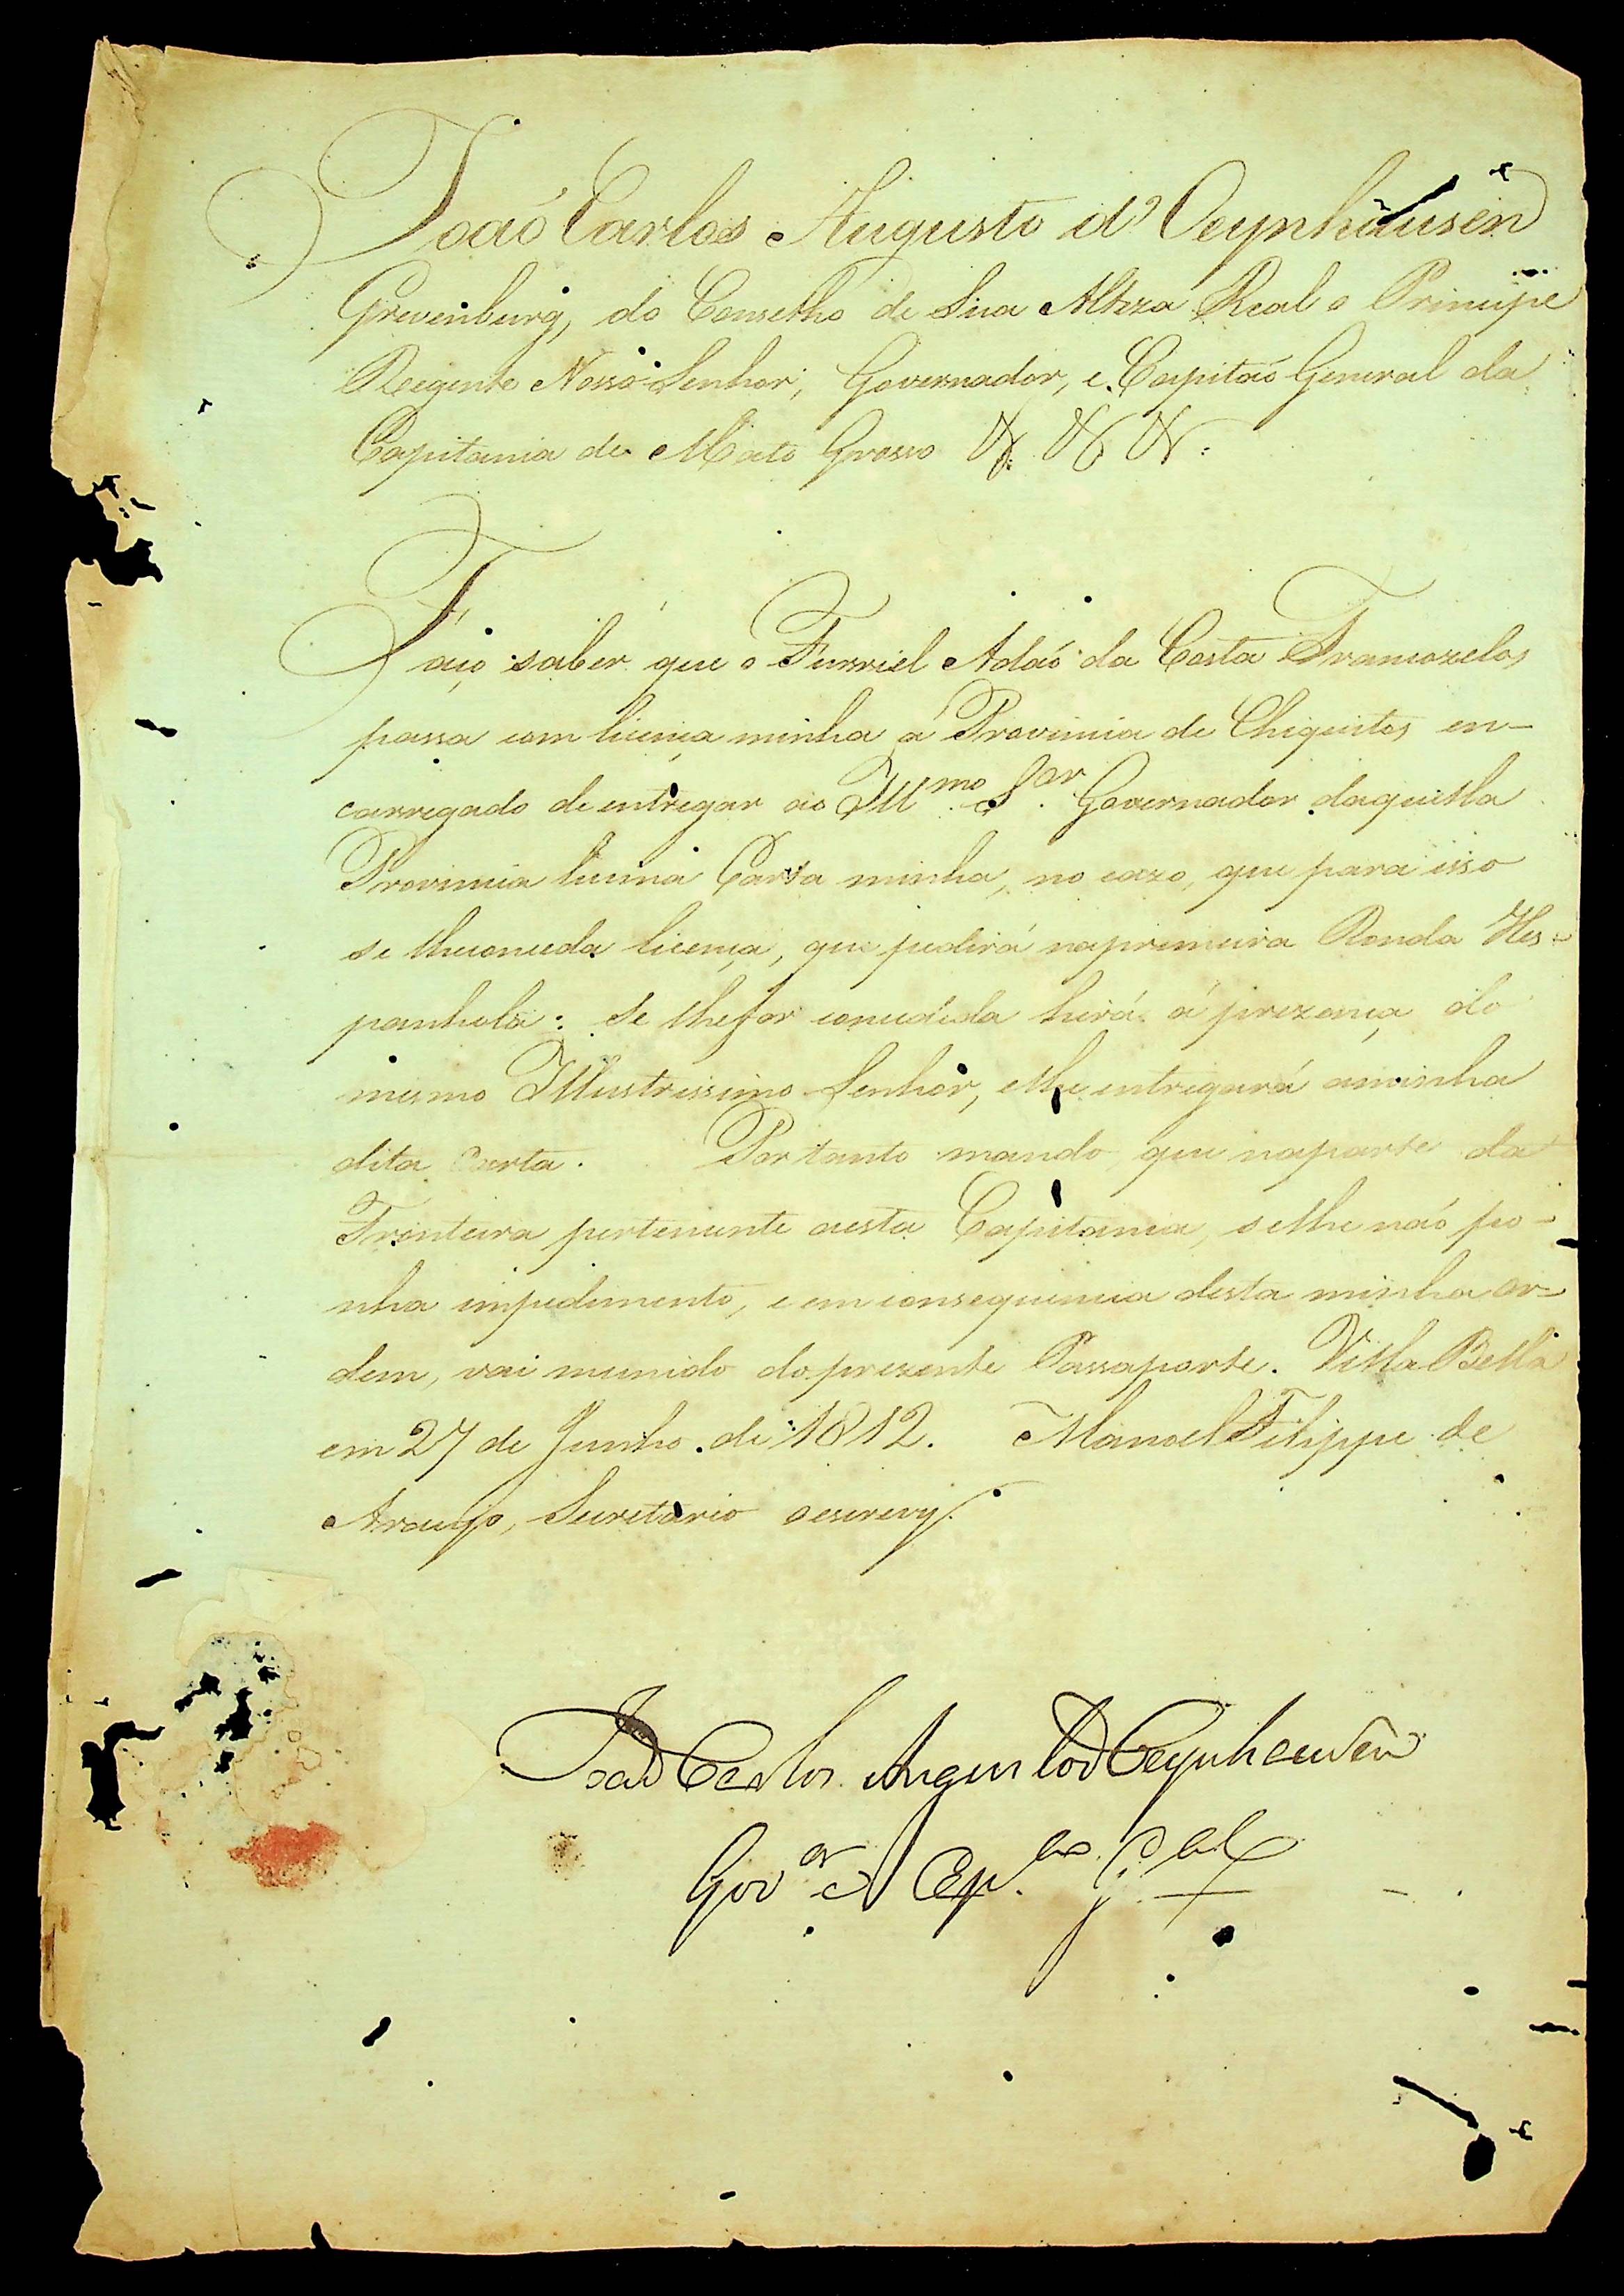 Joaó Carlos Augusto d'Oeynhausen
Grevenburg, do Conselho de Sua Alteza Real o Principe
Regente Nosso Senhor, Governador, e Capitaó General da
Capitania de Mato Grosso &. &. &.
Faço saber que o Furriel Adaó da Costa Francozelos
passa com licença minha á Provincia de Chiquitos en-
carregado de entregar ao Ill.mo S.or Governador daquella
Provincia huma Carta minha, no cazo, que para isso
se lhe conceda licença, que pedirá na primeira Ronda Hes=
panhola: se lhe for concedida hirá á prezença do
mesmo Illustrissimo Senhor, e lhe entregará a minha
dita Carta. Portanto mando que na parte da
Fronteira pertencente a esta Capitania, se lhe naó po-
nha impedimento, e em consequencia desta minha or-
dem, vai munido do prezente Passaporte. Villa Bella
em 27 de Junho de 1812. Manoel Filippe de
Araujo, Secretario o escrevy.
Joaõ Carlos Augusto d'Oeynhausen
Gov.or e Cap.ão G.al